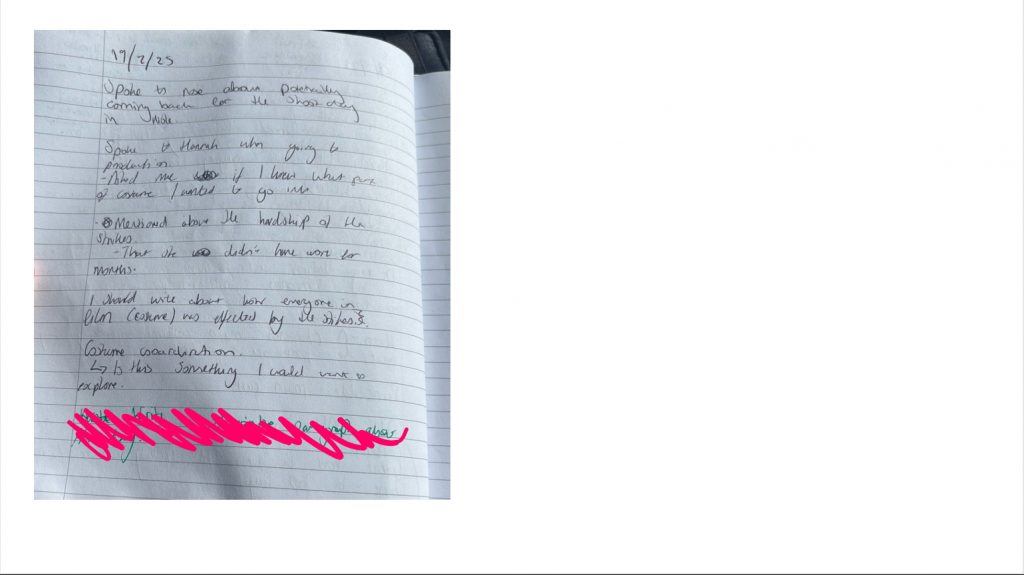 19/2/25
Spoke to rose about potentially
coming back for the shoot day
in
Spoke to Hannah who going to
production.
- Asked me if I knew what part
of costume I wanted to go into
- Mentioned about the hardship of the
strikes.
- That she didn't have work for
months.
I should write about how everyone in
film (costume) was effected by the strikes.
Costume coordination.
↳ Is this something I would want to
explore.